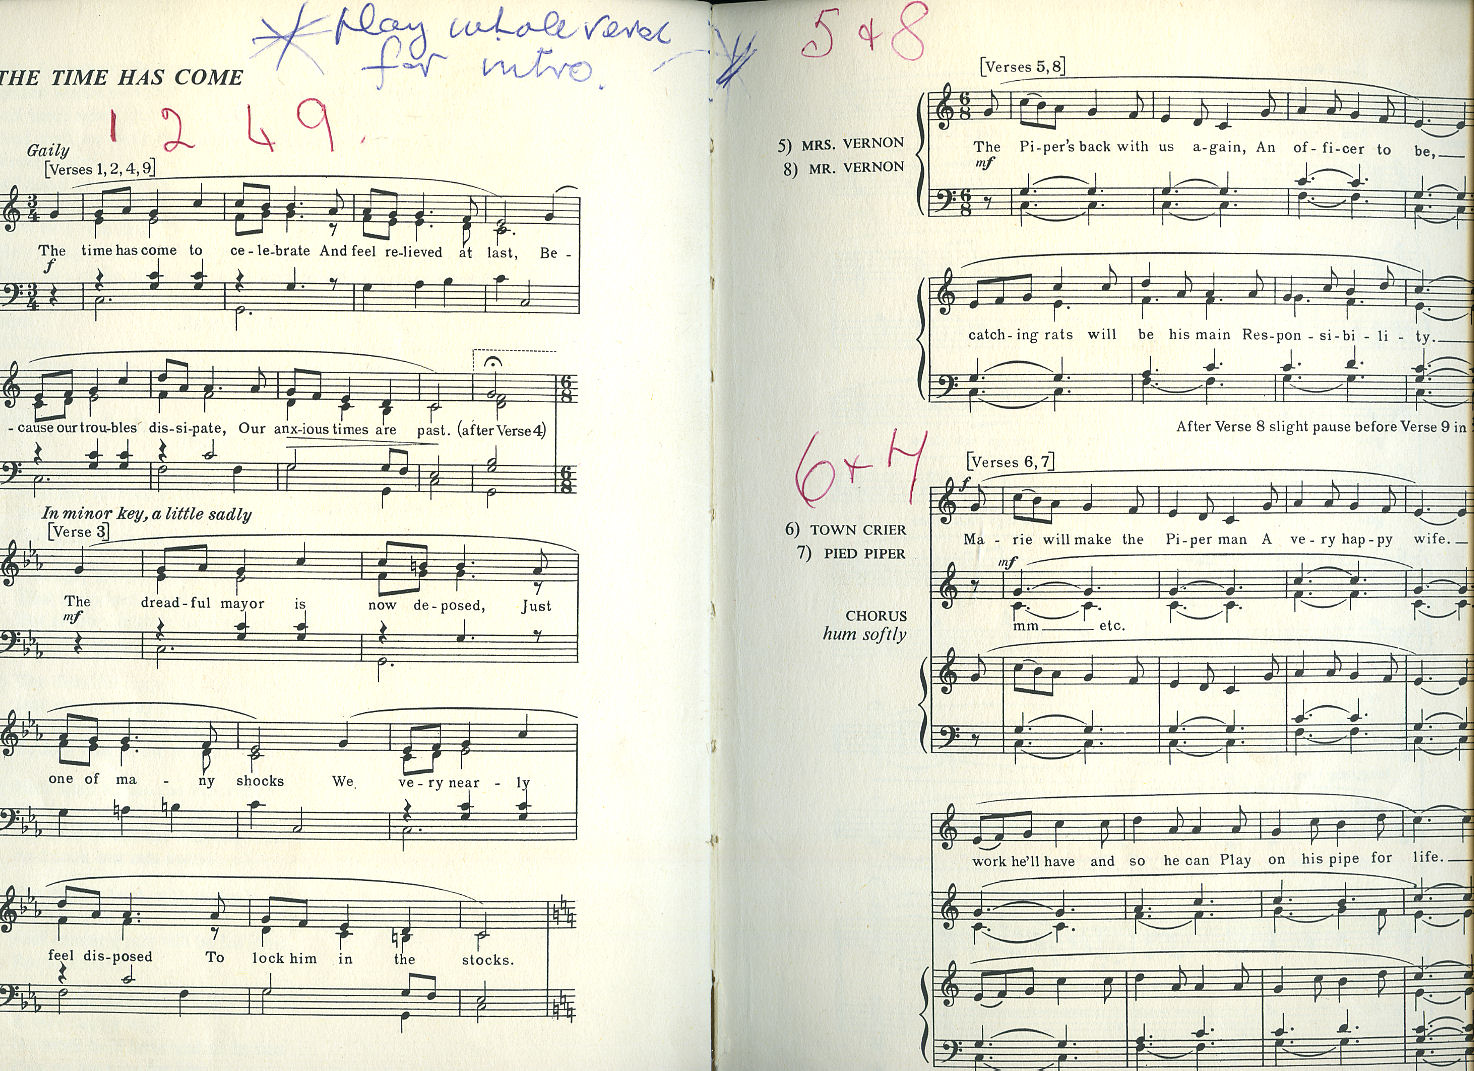 * Play whole verse
for intro.
THE TIME HAS COME
1 2 4 9.
Gaily
[Verses 1, 2, 4, 9]
The time has come to ce-le-brate And feel re-lieved at last, Be-
f
-cause our trou-bles dis-si-pate, Our anx-ious times are past. (after Verse 4)
In minor key, a little sadly
[Verse 3]
The dread-ful mayor is now de-posed, Just
mf
one of ma-ny shocks We ve-ry near-ly
feel dis-posed To lock him in the stocks.
5 & 8
[Verses 5, 8]
5) MRS. VERNON
8) MR. VERNON
The Pi-per's back with us a-gain, An of-fi-cer to be,
mf
catch-ing rats will be his main Res-pon-si-bi-li-ty.
After Verse 8 slight pause before Verse 9 in
6 + 7
[Verses 6, 7]
f
6) TOWN CRIER
7) PIED PIPER
Ma-rie will make the Pi-per man A ve-ry hap-py wife.
mf
CHORUS
hum softly
mm etc.
work he'll have and so he can Play on his pipe for life.